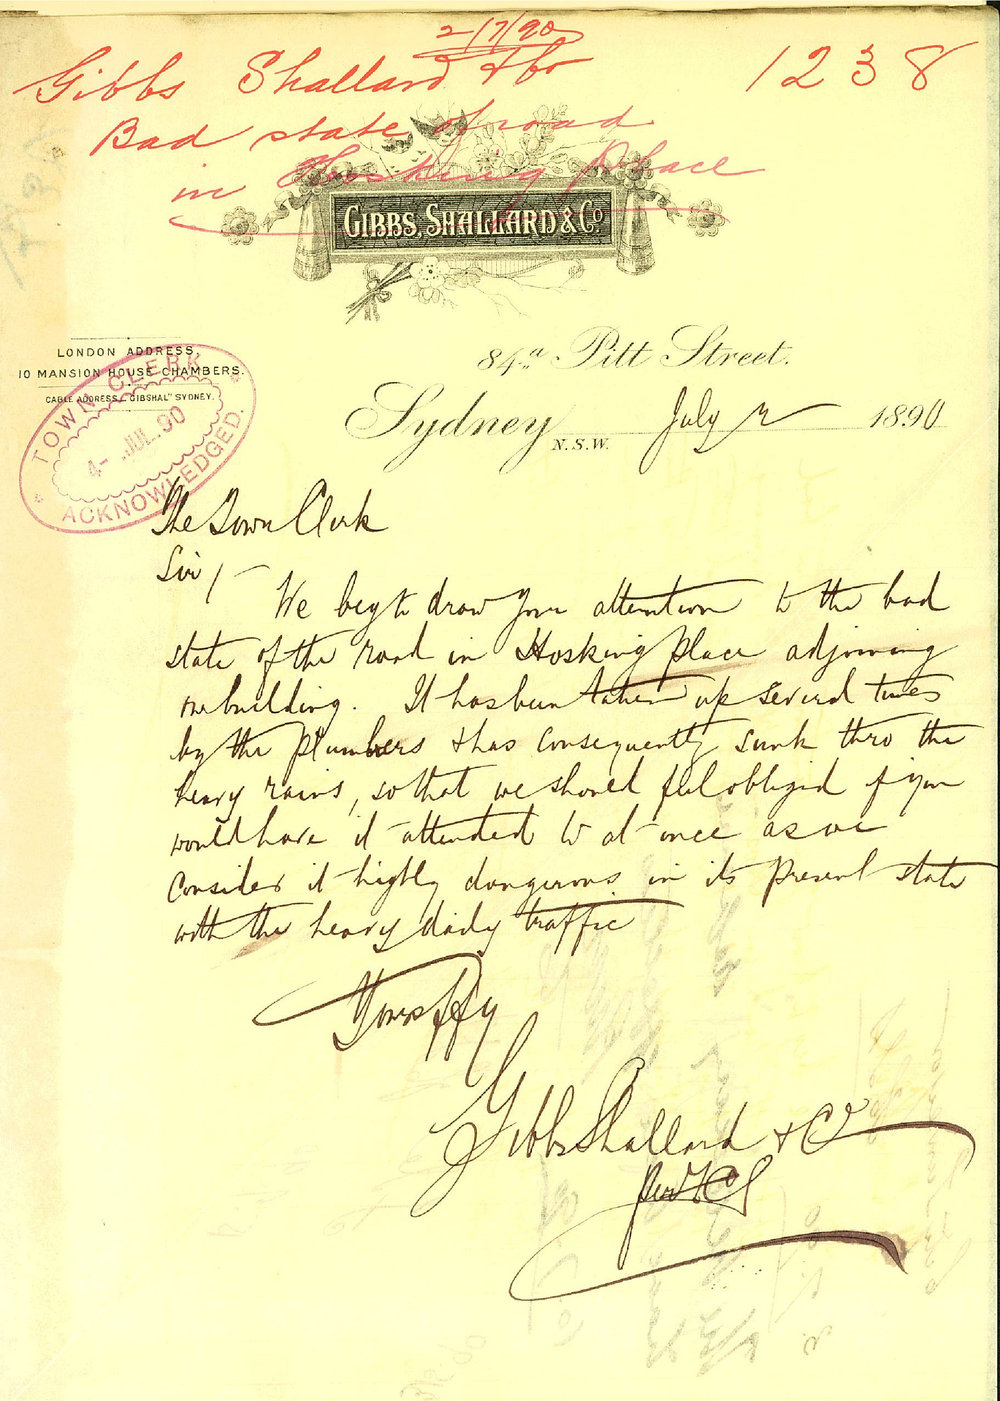 2/7/90
Gibbs Shallard & Co 1238
Bad state of road
in Hosking Place
GIBBS, SHALLARD & Co.
LONDON ADDRESS,
10 MANSION HOUSE CHAMBERS.
CABLE ADDRESS, "GIBSHAL" SYDNEY.
TOWN CLERK
4- JUL. 90
ACKNOWLEDGED.
84a Pitt Street.
Sydney N.S.W. July 2 1890
The Town Clerk
Sir/-
We beg to draw your attention to the bad
state of the road in Hosking Place adjoining
our building. It has been taken up several times
by the plumbers & has consequently sunk thro the
heavy rains, so that we should feel obliged if you
would have it attended to at once as we
consider it highly dangerous in its present state
with the heavy daily traffic
Yours ffy
Gibbs Shallard & Co